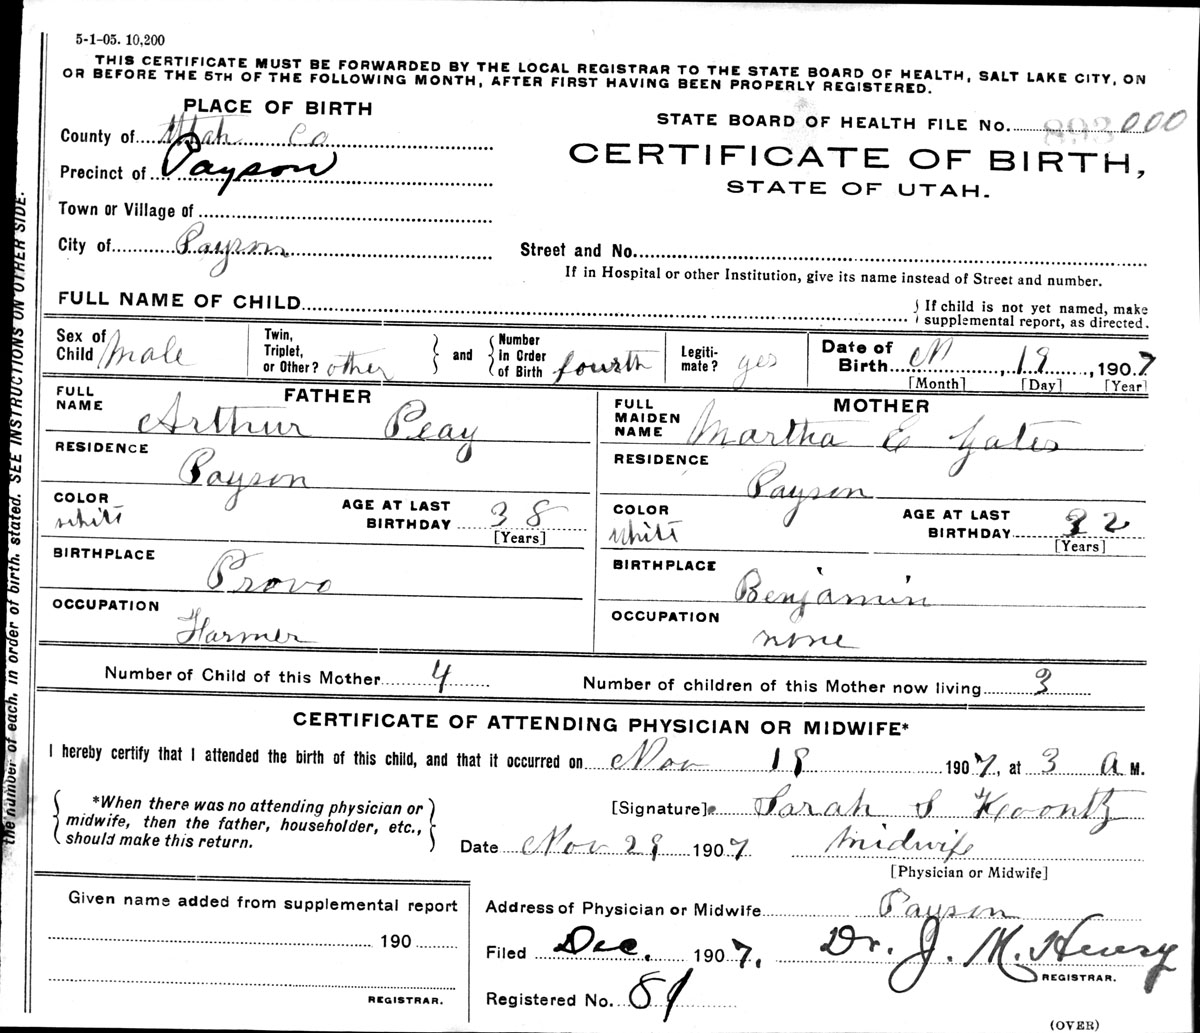 5-1-05. 10,200
THIS CERTIFICATE MUST BE FORWARDED BY THE LOCAL REGISTRAR TO THE STATE BOARD OF HEALTH, SALT LAKE CITY, ON
OR BEFORE THE 5TH OF THE FOLLOWING MONTH, AFTER FIRST HAVING BEEN PROPERLY REGISTERED.
PLACE OF BIRTH
County of Utah Co
Precinct of Payson
Town or Village of
City of Payson
STATE BOARD OF HEALTH FILE No. 893 000
CERTIFICATE OF BIRTH,
STATE OF UTAH.
Street and No.
If in Hospital or other Institution, give its name instead of Street and number.
FULL NAME OF CHILD { If child is not yet named, make supplemental report, as directed.
Sex of Child Male
Twin, Triplet, or Other? other } and { Number in Order of Birth fourth
Legiti-mate? yes
Date of Birth N , 19 , 1907
[Month] [Day] [Year]
FATHER
FULL NAME Arthur Peay
RESIDENCE Payson
COLOR white
AGE AT LAST BIRTHDAY 38 [Years]
BIRTHPLACE Provo
OCCUPATION Farmer
MOTHER
FULL MAIDEN NAME Martha E Yates
RESIDENCE Payson
COLOR white
AGE AT LAST BIRTHDAY 32 [Years]
BIRTHPLACE Benjamin
OCCUPATION none
Number of Child of this Mother 4
Number of children of this Mother now living 3
CERTIFICATE OF ATTENDING PHYSICIAN OR MIDWIFE*
I hereby certify that I attended the birth of this child, and that it occurred on Nov 19 1907, at 3 a M.
{ *When there was no attending physician or midwife, then the father, householder, etc., should make this return. }
[Signature] Sarah S Koontz
Date Nov 29 1907 Midwife
[Physician or Midwife]
Given name added from supplemental report
190
REGISTRAR.
Address of Physician or Midwife Payson
Filed Dec. 1907. Dr. J. M. Henry
REGISTRAR.
Registered No. 81
(OVER)
the number of each, in order of birth, stated. SEE INSTRUCTIONS ON OTHER SIDE.